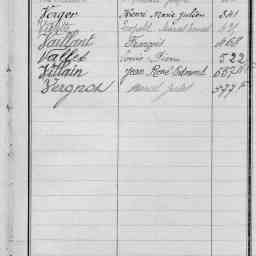 Verger Pierre Marie Julien 341
Valor Léopold Marcel
Vaillant François 468
Vallet Louis Pierre 522
Villain Jean René Edmond 557
Vergnos Marcel Jules 577